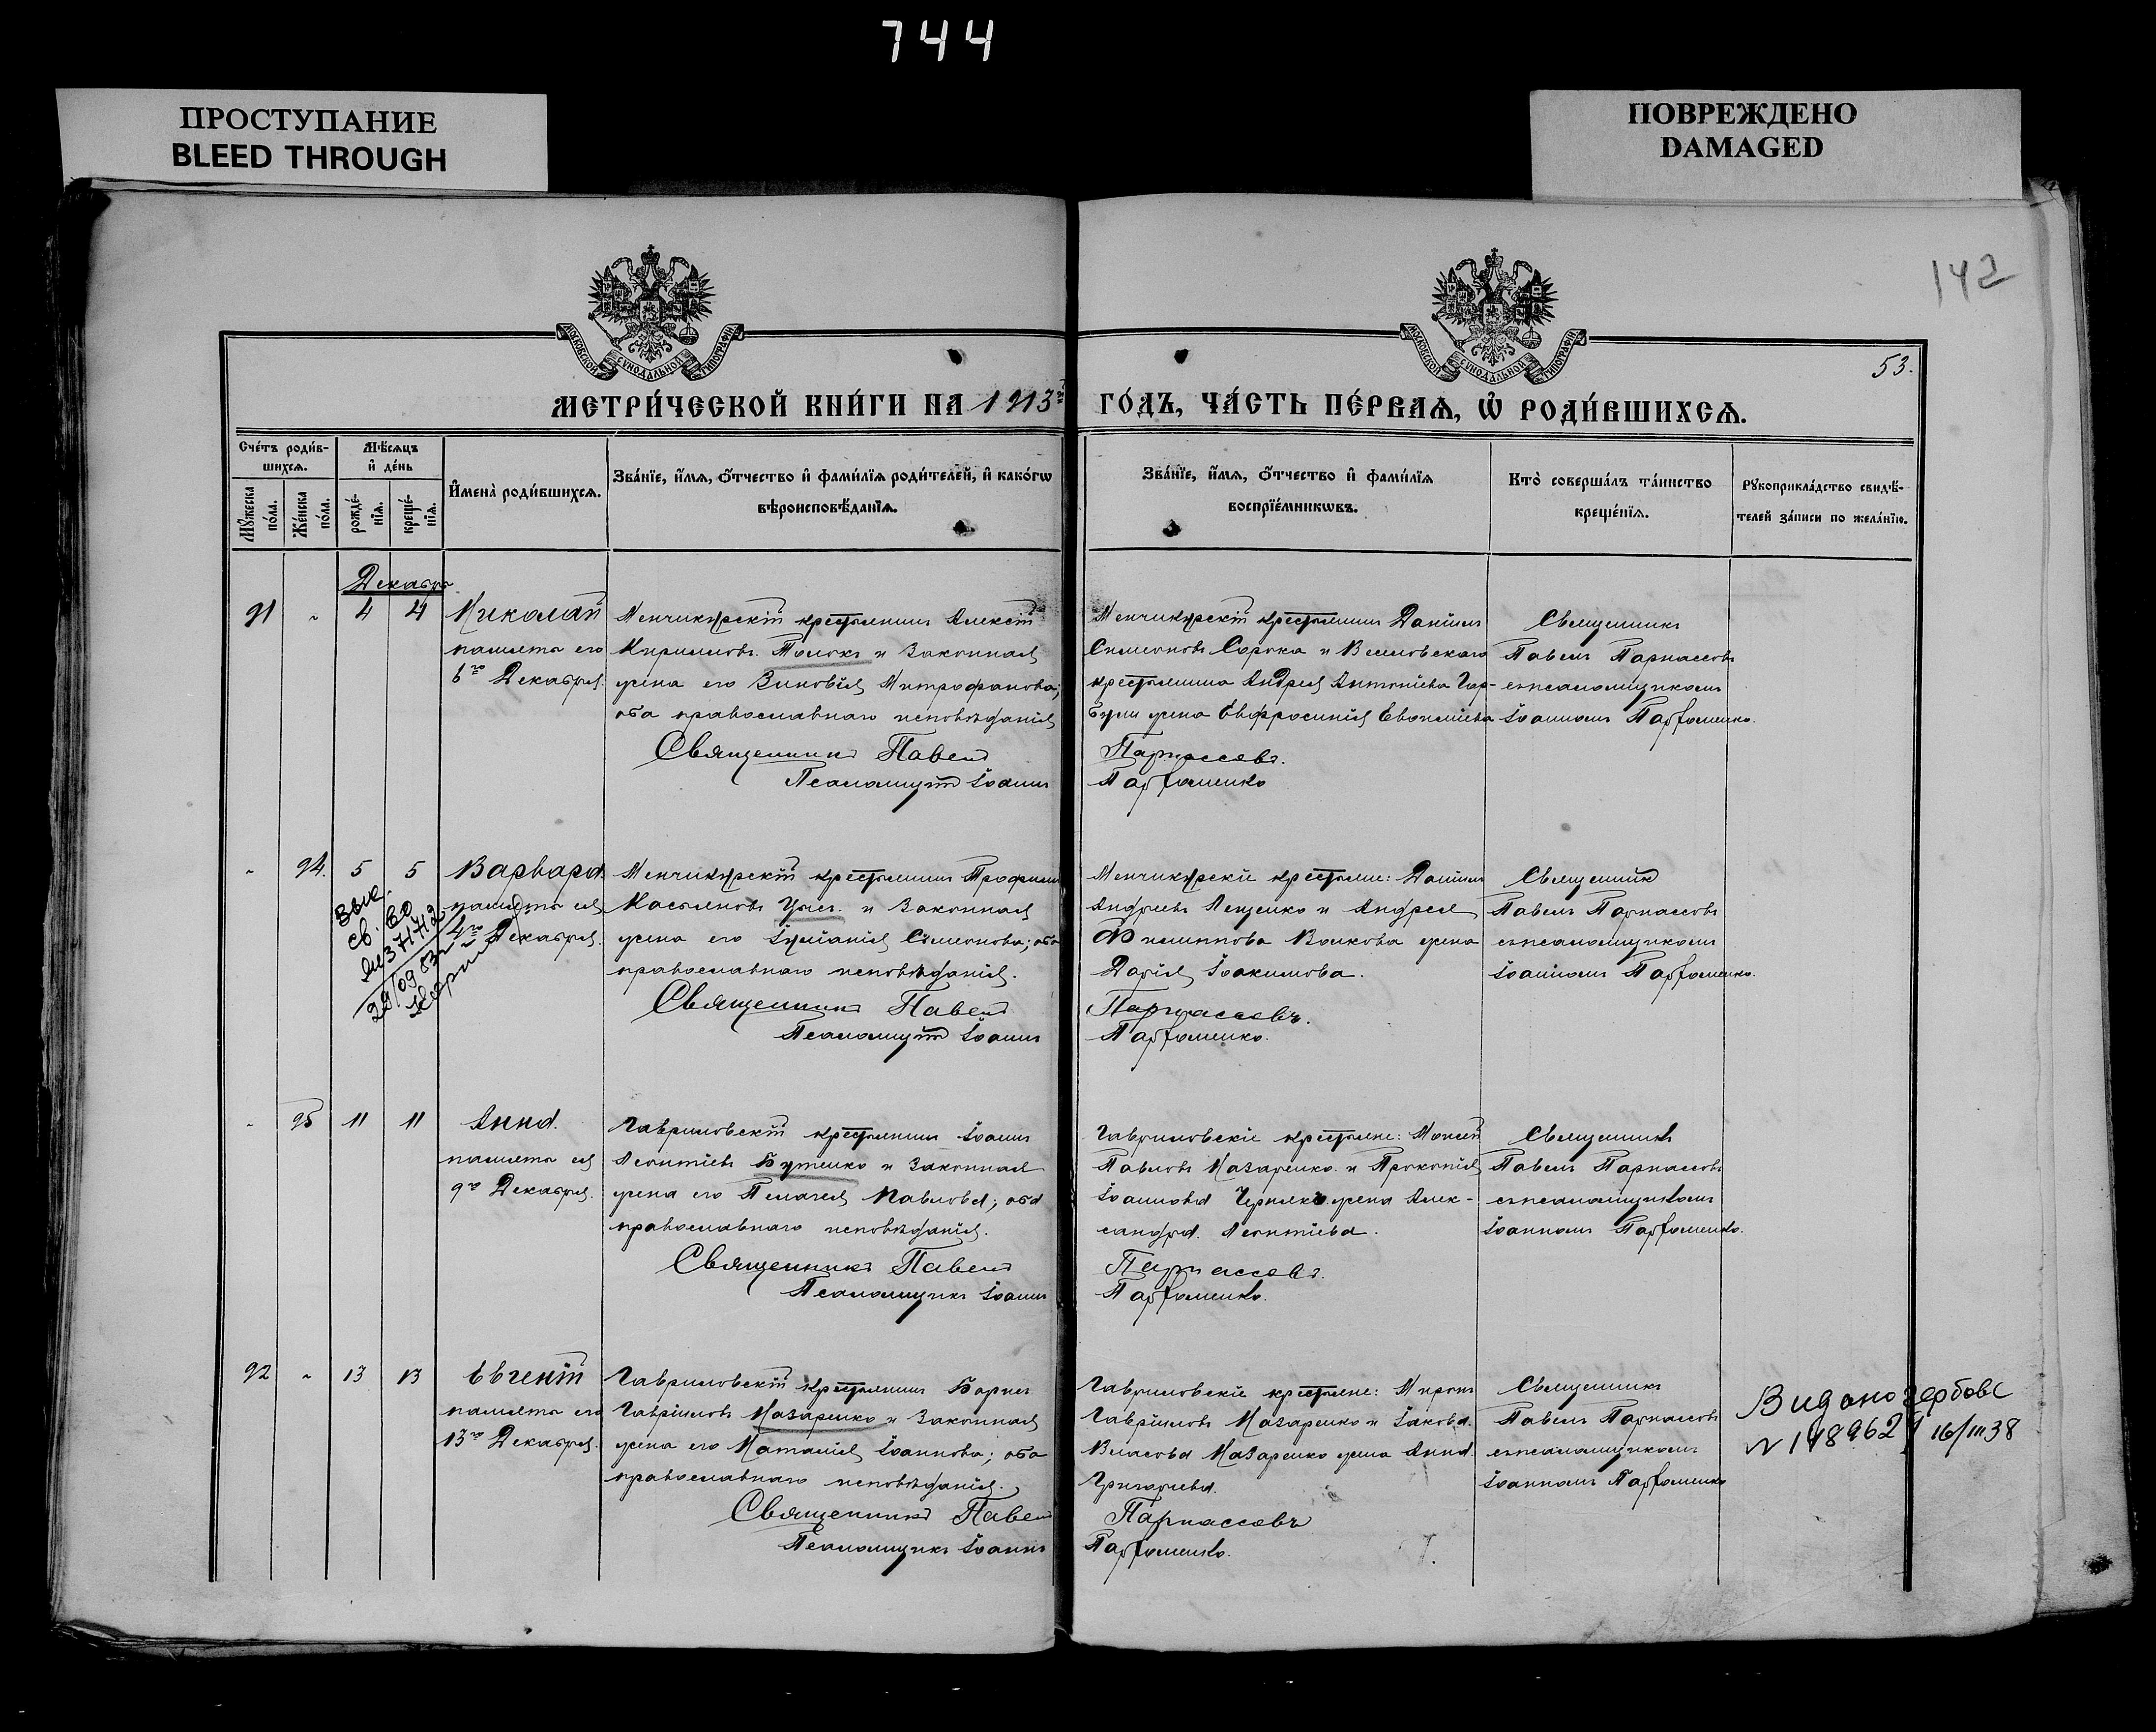 744
ПРОСТУПАНИЕ
BLEED THROUGH
ПОВРЕЖДЕНО
DAMAGED
142
МОСКОВСКОЙ СУНОДАЛЬНОЙ ТИПОГРАФІИ
МОСКОВСКОЙ СУНОДАЛЬНОЙ ТИПОГРАФІИ
53.
МЕТРИ́ЧЕСКОЙ КНИ́ГИ НА 1913й ГО́ДЪ, ЧА́СТЬ ПЕ́РВАѦ, Ѡ҆ РОДИ́ВШИХСѦ.
Сче́тъ роди́в-
шихсѧ.
Мꙋ́жеска по́ла.
Же́нска по́ла.
Мѣ́сѧцъ
и҆ де́нь
рожде́-
нїѧ.
креще́-
нїѧ.
И҆мена̀ роди́вшихсѧ.
Зва́нїе, и҆́мѧ, ѻ҆́тчество и҆ фами́лїѧ роди́телей, и҆ како́гѡ
вѣроисповѣ́данїѧ.
Зва́нїе, и҆́мѧ, ѻ҆́тчество и҆ фами́лїѧ
воспрїе́мникѡвъ.
Кто̀ соверша́лъ та́инство
креще́нїѧ.
Рꙋкоприкла́дство свидѣ́-
телей за́писи по жела́нїю.
Декабрь
91 " 4 4 Николай
память его
6го Декабря.
Менчикурскій крестьянинъ Алексій
Кирилловъ Толокъ и законная
жена его Зиновія Митрофанова;
оба православнаго исповѣданія
Священникъ Павелъ
Псаломщикъ Іоаннъ
Менчикурскій крестьянинъ Даніилъ
Симеоновъ Сорока и Веселовскаго
крестьянина Андрея Антоніева Гор-
були жена Евфросинія Евѳиміева
Парнассовъ.
Парфоменко
Священникъ
Павелъ Парнассовъ
съ псаломщикомъ
Іоанномъ Парфоменко.
" 94. 5 5 Варвара
память ея
4го Декабря.
Вык.
св. во
29/09 83г
Менчикурскій крестьянинъ Трофимъ
Касьяновъ и законная
жена его Іуліанія Симеонова; оба
православнаго исповѣданія.
Священникъ Павелъ
Псаломщикъ Іоаннъ
Менчикурскіе крестьяне: Даніилъ
Андреевъ Лещенко и Андрея
Филиппова Волкова жена
Дарія Іоакимова.
Парнассовъ.
Парфоменко.
Священникъ
Павелъ Парнассовъ
съ псаломщикомъ
Іоанномъ Парфоменко.
" 95 11 11 Анна.
память ея
9го Декабря.
Гавриловскій крестьянинъ Іоаннъ
Леонтіевъ Бутенко и законная
жена его Пелагея Павлова; оба
православнаго исповѣданія.
Священникъ Павелъ
Псаломщикъ Іоаннъ
Гавриловскіе крестьяне: Моисей
Павловъ Назаренко и Прокопія
Іоаннова Черняко жена Алек-
сандра. Леонтіева.
Парнассовъ.
Парфоменко.
Священникъ
Павелъ Парнассовъ
съ псаломщикомъ
Іоанномъ Парфоменко.
92 " 13 13 Евгеній
память его
13го Декабря.
Гавриловскій крестьянинъ Борисъ
Гавріиловъ Назаренко и законная
жена его Наталія Іоаннова; оба
православнаго исповѣданія.
Священникъ Павелъ
Псаломщикъ Іоаннъ
Гавриловскіе крестьяне: Миронъ
Гавріиловъ Назаренко и Іакова
Власова Назаренко жена Анна
Григорьева.
Парнассовъ
Парфоменко.
Священникъ
Павелъ Парнассовъ
съ псаломщикомъ
Іоанномъ Парфоменко
Видано
16/III 38